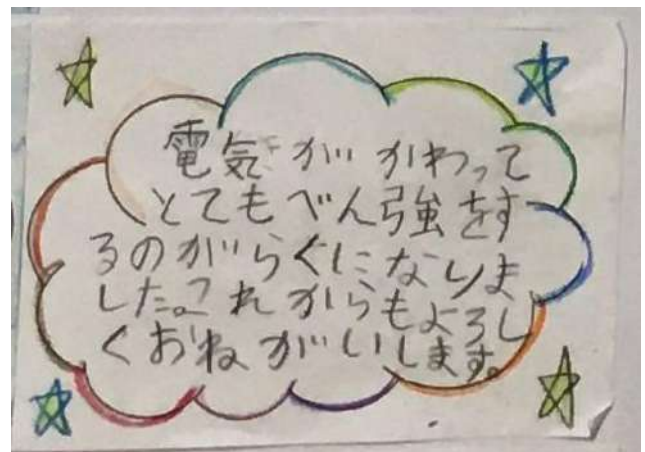 電気がかわって
とてもべん強をす
るのがらぐになりま
した。これからもよろし
くおねがいします。